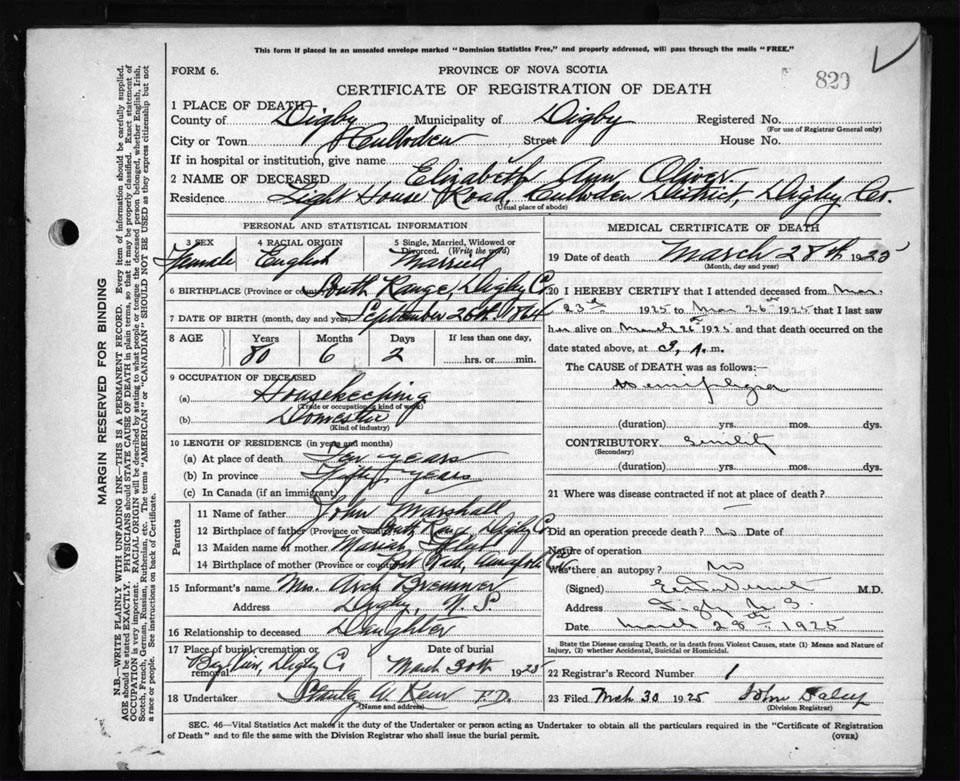 This form if placed in an unsealed envelope marked "Dominion Statistics Free," and properly addressed, will pass through the mails "FREE."
FORM 6.
PROVINCE OF NOVA SCOTIA
829
CERTIFICATE OF REGISTRATION OF DEATH
1 PLACE OF DEATH
County of Digby Municipality of Digby Registered No.
(For use of Registrar General only)
City or Town Culloden Street House No.
If in hospital or institution, give name
2 NAME OF DECEASED Elizabeth Ann Oliver
Residence Light House Road, Culloden District, Digby Co.
(Usual place of abode)
PERSONAL AND STATISTICAL INFORMATION
3 SEX 4 RACIAL ORIGIN 5 Single, Married, Widowed or Divorced. (Write the word)
Female English Married
6 BIRTHPLACE (Province or country) South Range, Digby Co.
7 DATE OF BIRTH (month, day and year) September 26th
8 AGE Years Months Days If less than one day,
80 6 2 hrs. or min.
9 OCCUPATION OF DECEASED
(a) Housekeeping
(Trade or occupation or kind of work)
(b) Domestic
(Kind of industry)
10 LENGTH OF RESIDENCE (in years and months)
(a) At place of death Ten years
(b) In province Fifty years
(c) In Canada (if an immigrant)
Parents
11 Name of father John Marshall
12 Birthplace of father (Province or country) South Range, Digby Co
13 Maiden name of mother
14 Birthplace of mother (Province or country)
15 Informant's name Mrs. Arch Bremner
Address Digby, N. S
16 Relationship to deceased Daughter
17 Place of burial, cremation or removal Date of burial
Digby Co March 30th 1925
18 Undertaker
(Name and address)
MEDICAL CERTIFICATE OF DEATH
19 Date of death March 28th 1925
(Month, day and year)
20 I HEREBY CERTIFY that I attended deceased from Mar.
23rd 1925 to Mar 26th 1925 that I last saw
her alive on March 26th 1925 and that death occurred on
date stated above, at 3 m.
The CAUSE OF DEATH was as follows:—
Hemiplegia
(duration) yrs. mos. dys.
CONTRIBUTORY Senility
(Secondary)
(duration) yrs. mos. dys.
21 Where was disease contracted if not at place of death?
Did an operation precede death? no Date of
Nature of operation
Was there an autopsy? No
(Signed) M.D.
Address Digby N. S.
Date March 28th 1925
State the Disease causing Death, or in death from Violent Causes, state (1) Means and Nature of Injury, (2) whether Accidental, Suicidal or Homicidal.
22 Registrar's Record Number 1
23 Filed Mch 30 1925 John Daley
(Division Registrar)
SEC. 46—Vital Statistics Act makes it the duty of the Undertaker or person acting as Undertaker to obtain all the particulars required in the "Certificate of Registration
of Death" and to file the same with the Division Registrar who shall issue the burial permit.
(OVER)
MARGIN RESERVED FOR BINDING
N.B.—WRITE PLAINLY WITH UNFADING INK—THIS IS A PERMANENT RECORD. Every item of information should be carefully supplied.
AGE should be stated EXACTLY. PHYSICIANS should STATE CAUSE OF DEATH in plain terms, so that it may be properly classified. Exact statement of
OCCUPATION is very important. RACIAL ORIGIN will be described by stating to what people or tongue the deceased person belonged, whether English, Irish,
Scotch, French, German, Russian, Ruthenian, etc. The terms "AMERICAN" or "CANADIAN" SHOULD NOT BE USED as they express citizenship but not
a race or people. See instructions on back of Certificate.